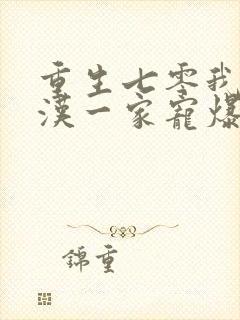 重生七零我
漢一家寵爆
錦重